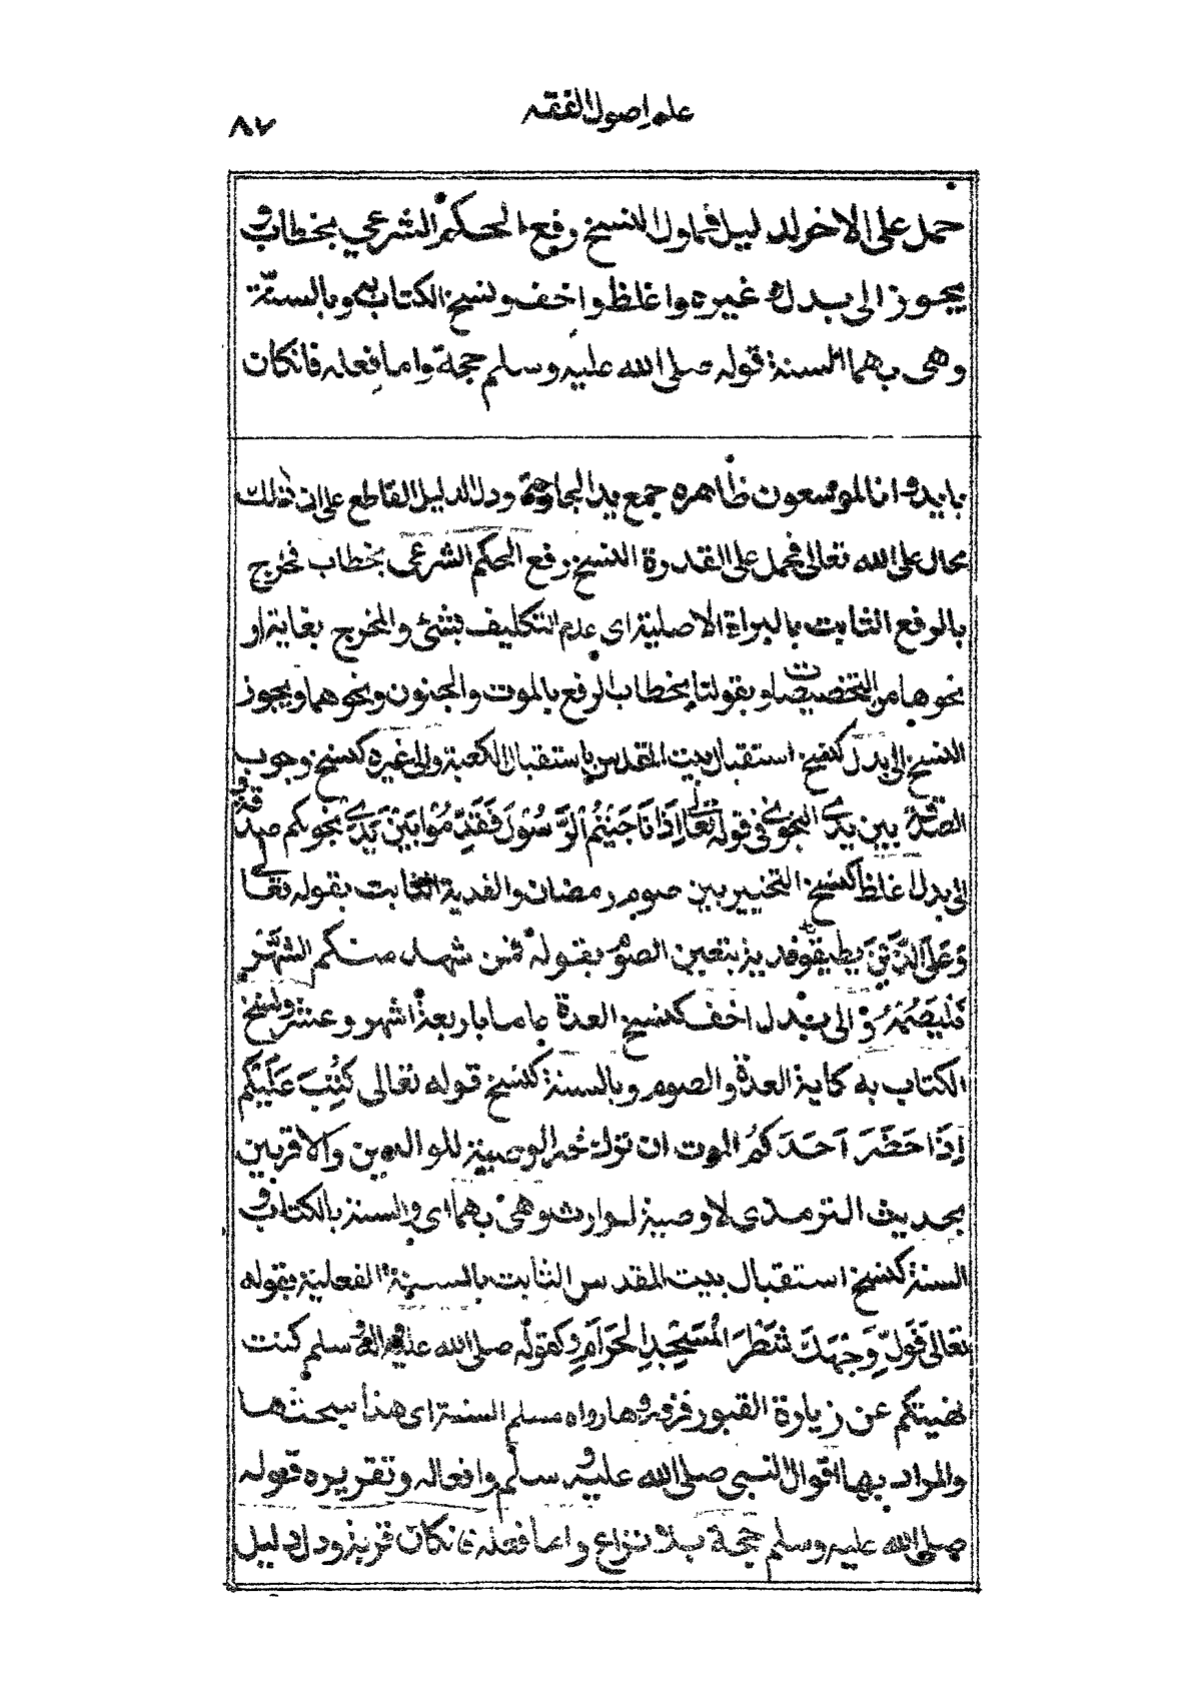 علم اصول الفقه
٨٧
حمل على الاخر لدليل فماول النسخ رفع الحكم الشرعي بخطاب و
يجوز الى بدل و غيره واغلظ واخف ونسخ الكتاب به وبالسنة
وهى بهما السنة قوله صلى الله عليه وسلم حجة واما فعله فانكان
بايد وانا لموسعون ظاهره جمع يد الجارحة ودل الدليل القاطع على ان ذلك
محال على الله تعالى فحمل على القدرة النسخ رفع الحكم الشرعى بخطاب فخرج
بالرفع الثابت بالبراءة الاصلية اى عدم التكليف بشئ والمخرج بغاية او
نحوها من التخصيصات وبقولنا بخطاب الرفع بالموت والجنون ونحوهما ويجوز
النسخ الى بدل كنسخ استقبال بيت المقدس باستقبال الكعبة والى غيره كنسخ وجوب
الصدقة بين يدى النجوى فى قوله تعالى اِذَا نَاجَيْتُمُ الرَّسُوْلَ فَقَدِّمُوْا بَيْنَ يَدَىْ نجوىكم صدقة و
الى بدل اغلظ كنسخ التخيير بين صوم رمضان والفدية الثابت بقوله تعالى
وَعَلَى الَّذِيْنَ يطيقونه فدية بتعين الصوم بقوله فمن شهد منكم الشَّهْرَ
فَلْيَصُمْهُ و الى بدل اخف كنسخ العدة عاما باربعة اشهر وعشر ونسخ
الكتاب به كاية العدة والصوم وبالسنة كنسخ قوله تعالى كُتِبَ عَلَيْكُمْ
اِذَا حَضَرَ اَحَدَكُمُ الموت ان ترك خيرا الوصية للوالدين والاقربين
بحديث الترمذى لا وصية لوارث وهى بهما اى والسنة بالكتاب و
السنة كنسخ استقبال بيت المقدس الثابت بالسنة الفعلية بقوله
تعالى فَوَلِّ وَجْهَكَ شَطْرَ الْمَسْجِدِ الْحَرَامِ وكقوله صلى الله عليه واله وسلم كنت
نهيتكم عن زيارة القبور فزوروها رواه مسلم السنة اى هذا مبحثها
والمراد بها اقوال النبى صلى الله عليه و سلم وافعاله وتقريره قوله
صلى الله عليه وسلم حجة بلا نزاع واما فعله فانكان قربة ودل دليل